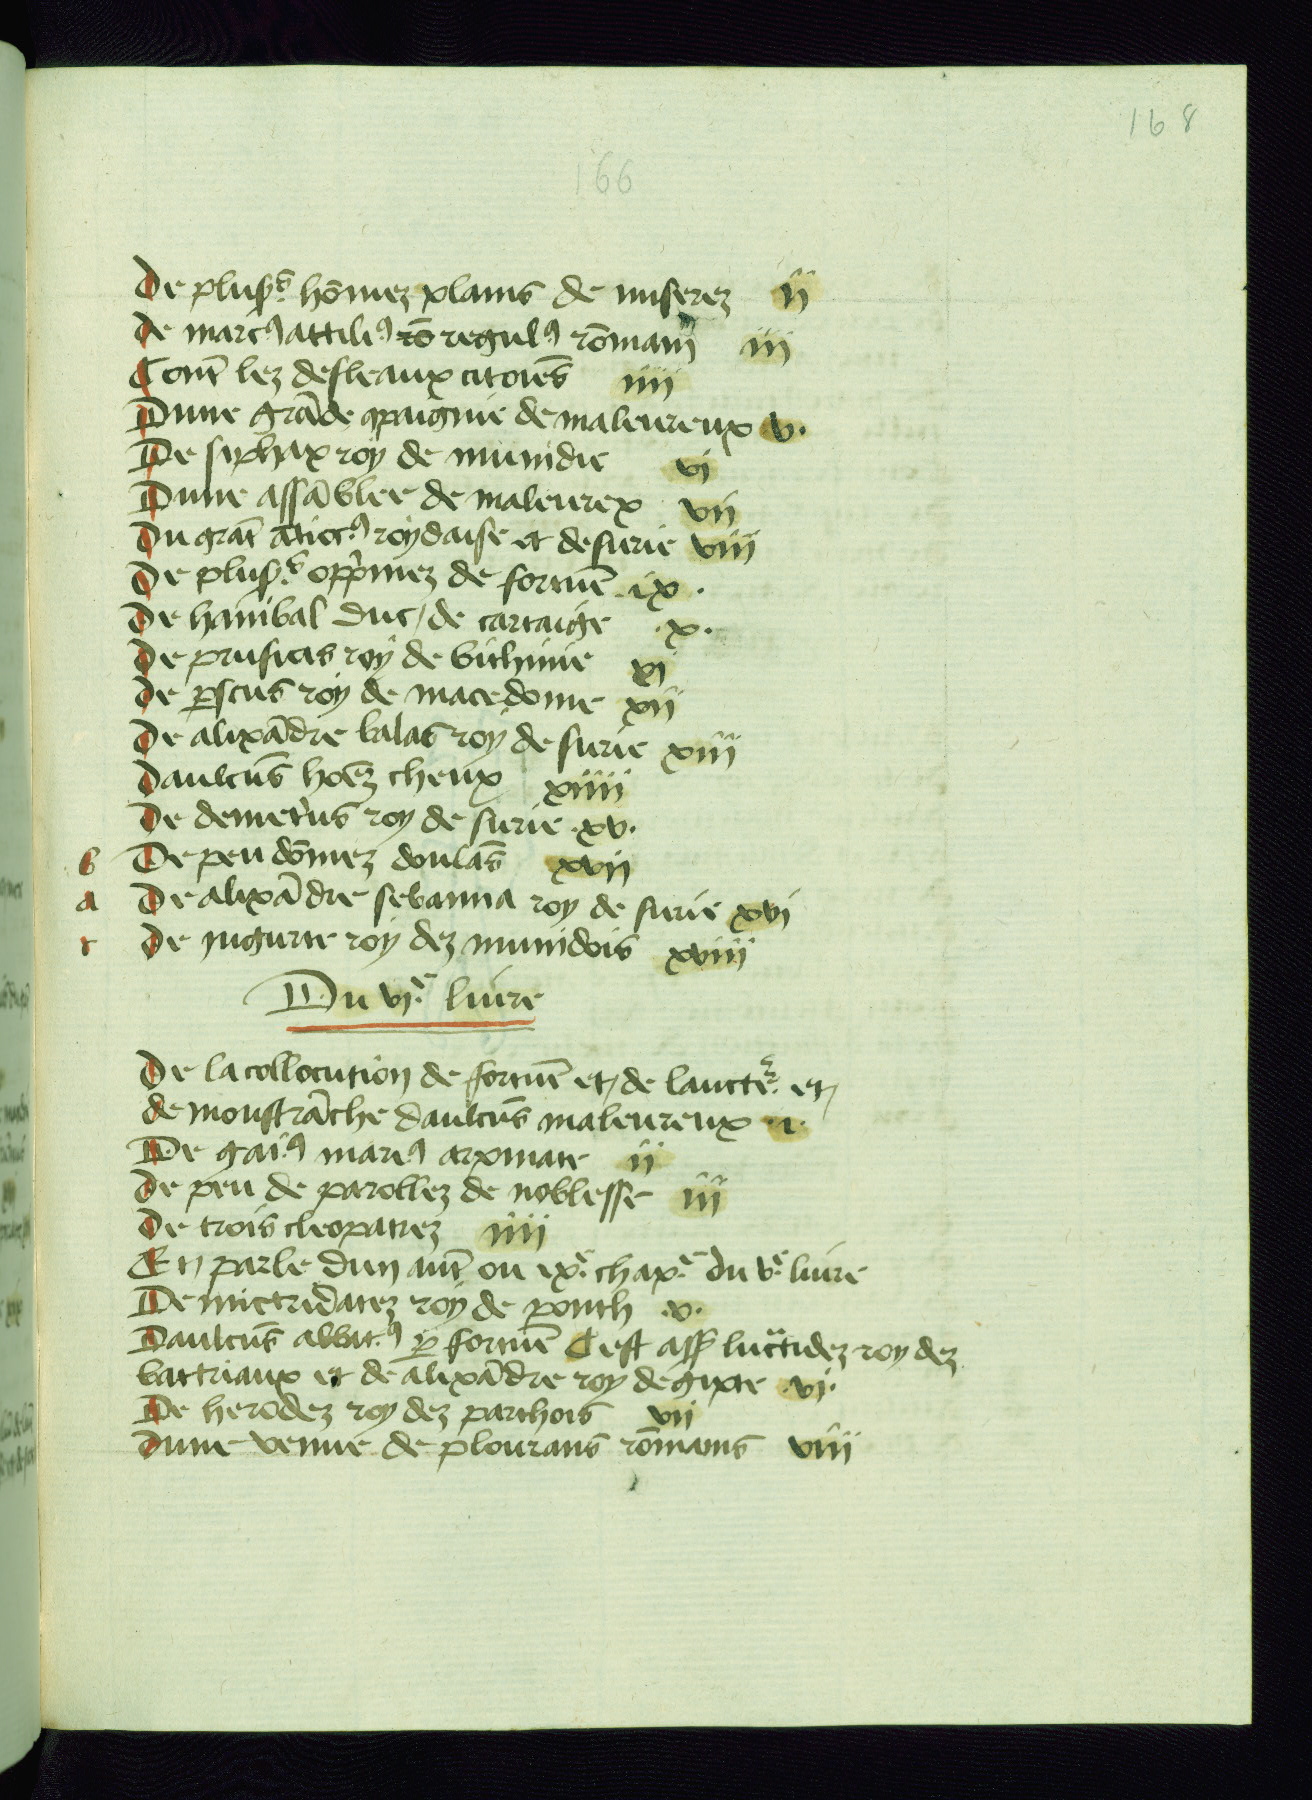 168
166
De plusrs hōmez plains de miserez ii
de marcꝰ attiliꝰ rō regulꝰ rōmain iii
Cont̄ lez desleaux citoiēs iiii
Dune grāde ꝯpaignie de maleureux v.
De siphax roy de numidie vi
Dune assāblee de maleurex vii
Du grāt ātiocꝰ roy daise et de surie viii
De plusrs opp̄mez de fortuē .ix.
De hanibal duc de cartaige .x.
De prusias roy de bithinie xi
de ꝑseus roy de macedonie xii
De alixādre balas roy de surie xiii
Daulcūs hoēz cheux xiiii
De demet̄us roy de surie .xv.
b De peu dōmez doulās xvii
a De alixādre sebanna roy de surie xvi
c De iugurte roy dez numidois xviii
Du vi.e liure
De la collocution de fortuē et de laucte.r et
de monstrāche daulcūs maleureux .i.
De gaiꝰ mariꝰ arpinate ii
de peu de parollez de noblesse iii
De trois cleopatrez iiii
Et parle dun aut̄ ou ix.e chap.e du v.e liure
De mictridatez roy de ponth .v.
Daulcūs abbatꝰ ꝑ fortuē Cest ass̄ luctidez roy dez
battriaux et de alixādre roy degipte .vi.
De herodez roy dez parthois vii
dune venue de plourans rōmains viii